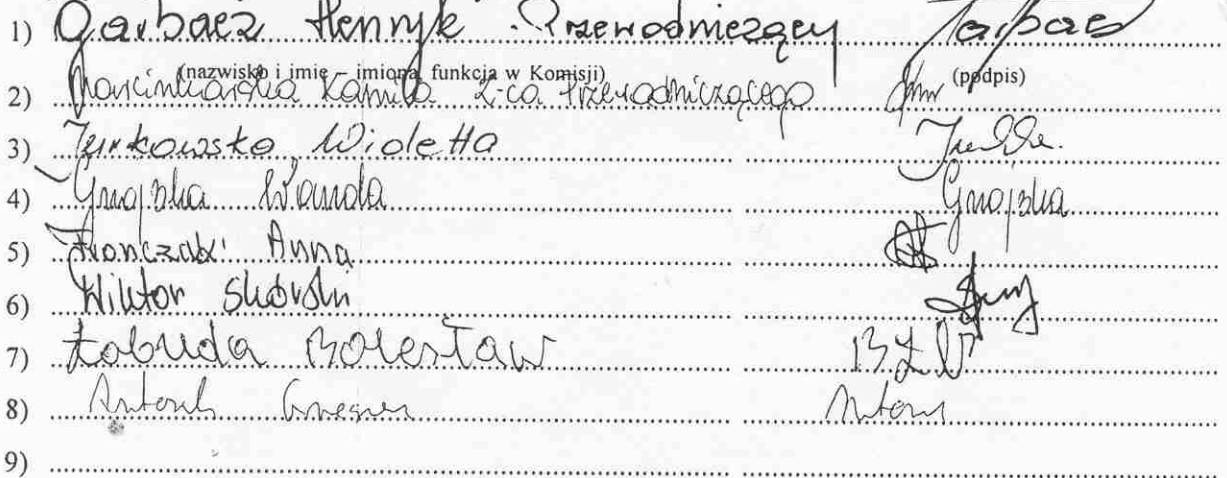 1) Garbacz Henryk Przewodniczący Garbacz
(nazwisko i imię – imiona, funkcja w Komisji) (podpis)
2) Marcinkowska Kamila Z-ca Przewodniczącego
3) Jurkowska Wioletta
4) Gnojska Wanda Gnojska
5) Fronczak Anna
6) Wiktor Skórski
7) Łobuda Bolesław BŁ
8) Antosik
9)